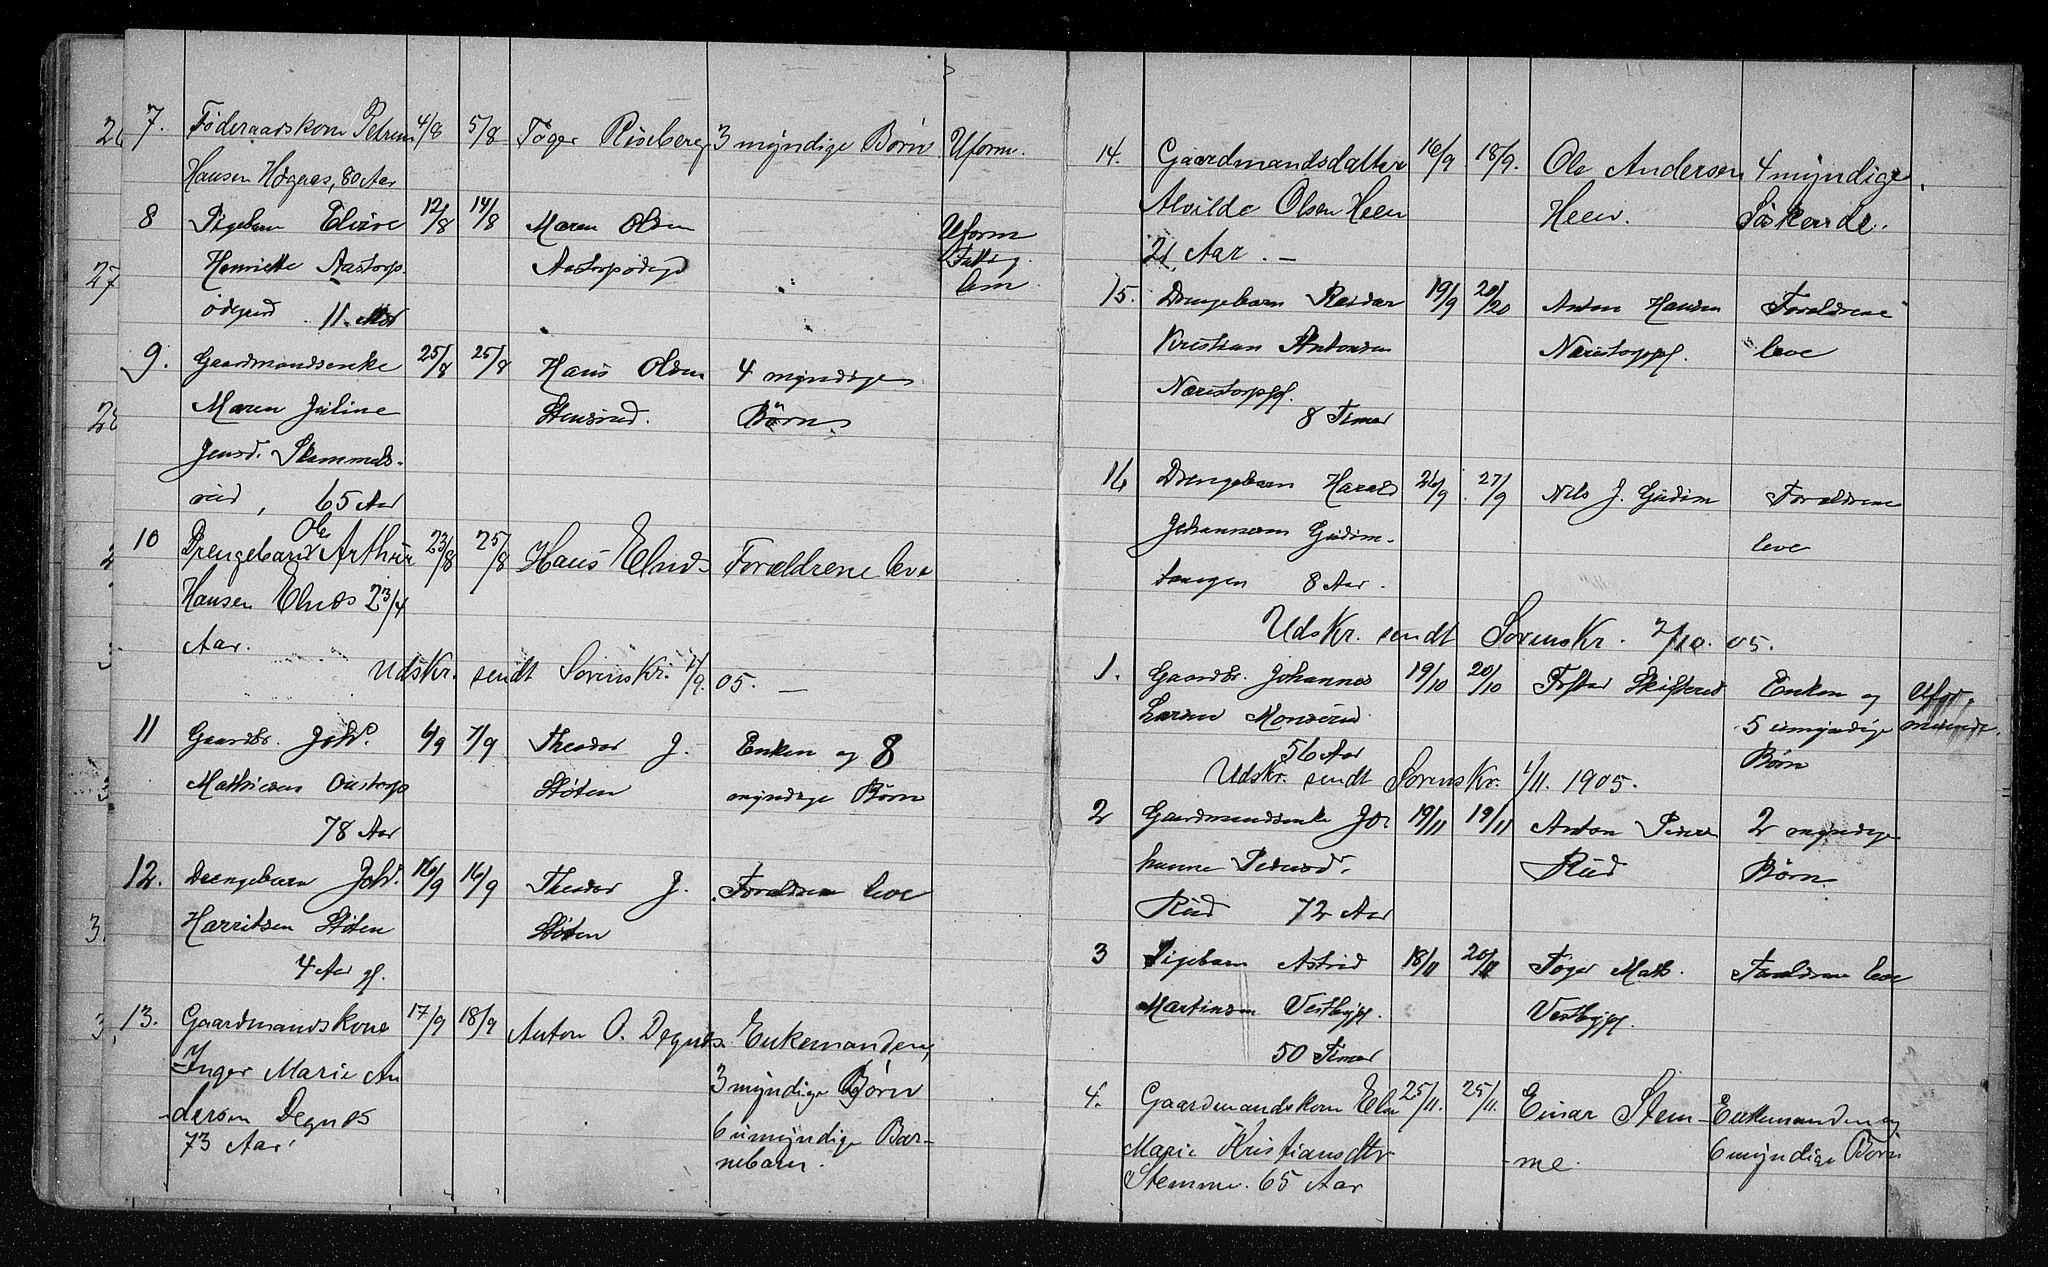 7. Føderaadskone Petrine 4/8 5/8 Tøger Riseberg 3 myndige Børn Uform.
Hansen Høgeras, 80 Aar
8 Pigebarn Elvire 12/8 14/8 Maren Olsen Uform
Henriette Aastorps Aastorpødegd Fattig
ødegard 11 Mdr lem
9. Gaardmandsenke 25/8 25/8 Hans Olsen 4 myndige
Maren Juline Stensrud. Børn
Jensd. Skammels-
rud, 65 Aar
Ole
10 Drengebarn Arthur 23/8 25/8 Hans Elnæs Forældrene leve
Hansen Elnæs 2 3/4
Aar.
Udskr. sendt Sorenskr. 4/9. 05. —
11 Gaardbr. Johs. 6/9 7/9 Theodor J. Enken og 8
Mathiesen Oustorp Støten myndige Børn
78 Aar
12. Drengebarn Johs. 16/9 16/9 Theodor J. Forældrene leve
Harritsen Støten Støten
4 Aar gl.
13. Gaardmandskone 17/9 18/9 Anton O. Degnæs Enkemanden,
Inger Marie An 3 myndige Børn
dersen Degnæs 6 umyndige Bar-
73 Aar nebarn.
14. Gaardmandsdatter 16/9 18/9. Ole Andersen 4 myndige
Alvilde Olsen Heen Heen. Søskende.
21 Aar. —
15. Drengebarn Reidar 19/9 20/20 Anton Hansen Forældrene
Kristian Antonsen Næristorpgf. leve
Næristorpgf.
8 Timer
16 Drengebarn Harald 26/9 27/9 Nils J. Gudim Forældrene
Johannesen Gudim- leve
tangen 8 Aar.
Udskr. sendt Sorenskr. 2/10. 05.
1. Gaardbr. Johannes 19/10 20/10 Enken og
Larsen Monserud 5 umyndige
56 Aar Børn
Udskr. sendt Sorenskr. 1/11. 1905.
2 Gaardmandsenke Jo- 19/11 19/11 Anton Peders 2 myndige
hanne Pedersd. Rud Børn.
Rud 72 Aar
3 Pigebarn Astrid 18/11 20/11 Tøger Mats. Forældrene leve
Martinsen Vestbygf. Vestbygf.
50 Timer
4. Gaardmandskone Elen 25/11. 25/11. Einar Stem- Enkemanden og
Marie Kristiansdtr -me. 6 myndige Børn
Stemme. 65 Aar